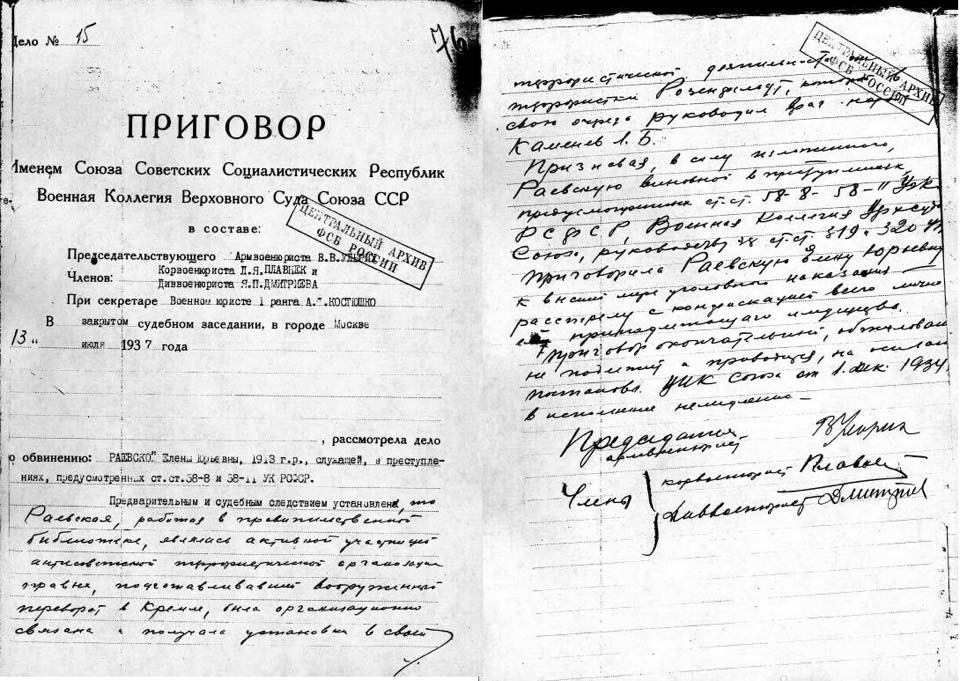 Дело № 15
76
ПРИГОВОР
Именем Союза Советских Социалистических Республик
Военная Коллегия Верховного Суда Союза ССР
в составе:
ЦЕНТРАЛЬНЫЙ АРХИВ
ФСБ РОССИИ
Председательствующего Армвоенюриста В.В.
Членов: Корвоенюриста Л.Я.ПЛАВНЕК и
Диввоенюриста Я.П.ДМИТРИЕВА
При секретаре Военном юристе 1 ранга А. .КОСТЮШКО
В закрытом судебном заседании, в городе Москве
13 " июля 1937 года
, рассмотрела дело
о обвинению: РАЕВСКОЙ Елены Юрьевны, 1913 г.р., служащей, в преступле-
ниях, предусмотренных ст.ст.58-8 и 58-11 УК РСФСР.
Предварительным и судебным следствием установлено, что
Раевская, работая в правительственной
библиотеке, являлась активной участницей
антисоветской террористической организации
правых, подготавливавшей вооруженный
переворот в Кремле, была организационно
связана и получала установки в своей
ЦЕНТРАЛЬНЫЙ АРХИВ
ФСБ РОССИИ
террористической деятельности
террористки Розенфельд,
свою очередь руководил враг нар
Каменев Л.Б.
Признавая, в силу изложенного,
Раевскую виновной в преступлениях
предусмотренных ст.ст. 58-8 - 58-11 УК
РСФСР, Военная Коллегия Верхсуда
Союза, руководствуясь ст.ст. 319 и 320 УПК
Приговорила Раевскую Елену Юрьевну
к высшей мере уголовного наказания —
расстрелу с конфискацией всего лично
ей принадлежащего имущества.
Приговор окончательный, обжалован
не подлежит и приводится, на основа
постановл. ЦИК Союза от 1. дек. 1934
в исполнение немедленно —
Председатель
армвоенюрист
В Ульрих
Члены
корвоенюрист Плавнек
Диввоенюрист Дмитриев